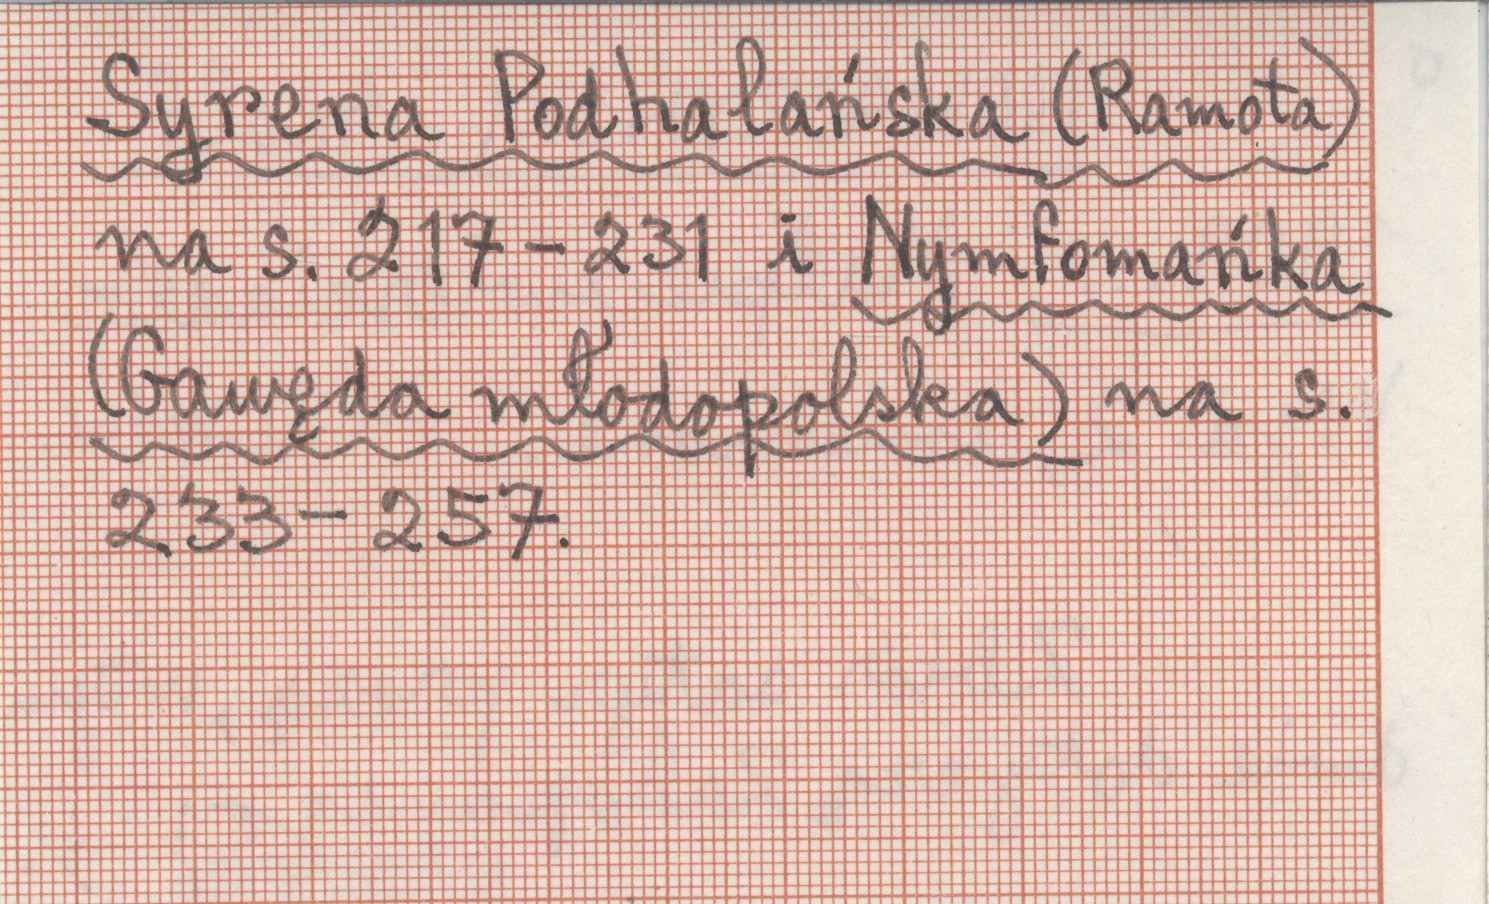 Syrena Podhalańska (Ramota)
na s. 217-231 i Nymfomańka
(Gawęda młodopolska) na s.
233-257.